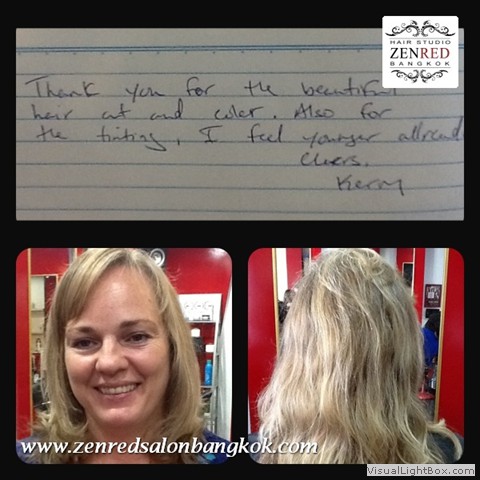 HAIR STUDIO
ZENRED
BANGKOK
Thank you for the beautiful
hair cut and color. Also for
the tinting, I feel younger allread
Cheers.
Kerry
www.zenredsalonbangkok.com
VisualLightBox.com